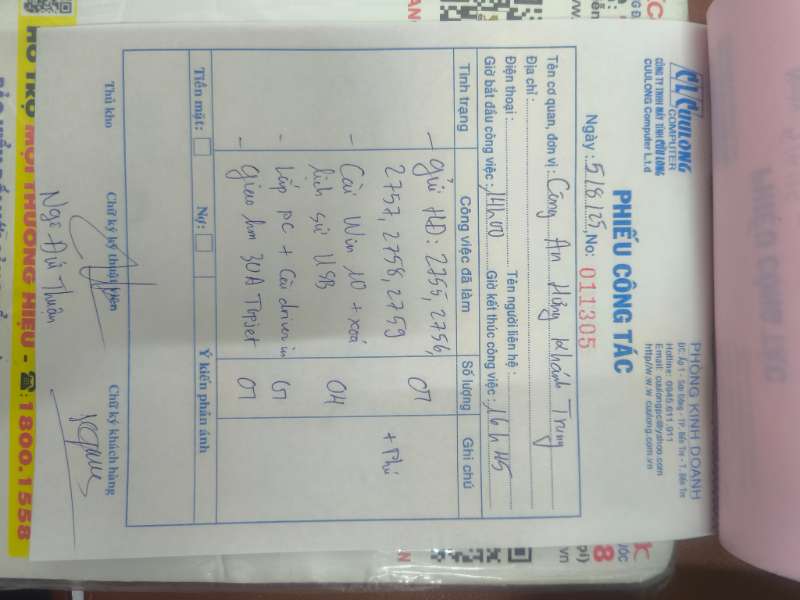 CUULONG
COMPUTER
CÔNG TY TNHH MÁY TÍNH CỬU LONG
CUULONG Computer L.t.d
PHÒNG KINH DOANH
Hotline: 0945.611.911
Email: cuulongpc@yahoo.com
http//w w w cuulong.com.vn
PHIẾU CÔNG TÁC
Ngày : 5/8/25 , No: 011305
Tên cơ quan, đơn vị : Công An Hưng Khánh Trung
Địa chỉ :
Điện thoại : Tên người liên hệ :
Giờ bắt đầu công việc : 14h00 Giờ kết thúc công việc : 16h45
Tình trạng Công việc đã làm Số lượng Ghi chú
- gửi HĐ: 2755, 2756, 07
2757, 2758, 2759 + Phí
- Cài Win 10 + xoá 04
lịch sử USB
- Lắp pc + Cài driver in
- Giao hm 30A Thpjet 01
Tiền mặt: Nợ: Ý kiến phản ánh
Thủ kho Chữ ký kỹ thuật viên Chữ ký khách hàng
Ngô Đức Thuận
HỖ TRỢ MỌI THƯƠNG HIỆU - ☎:1800.1558